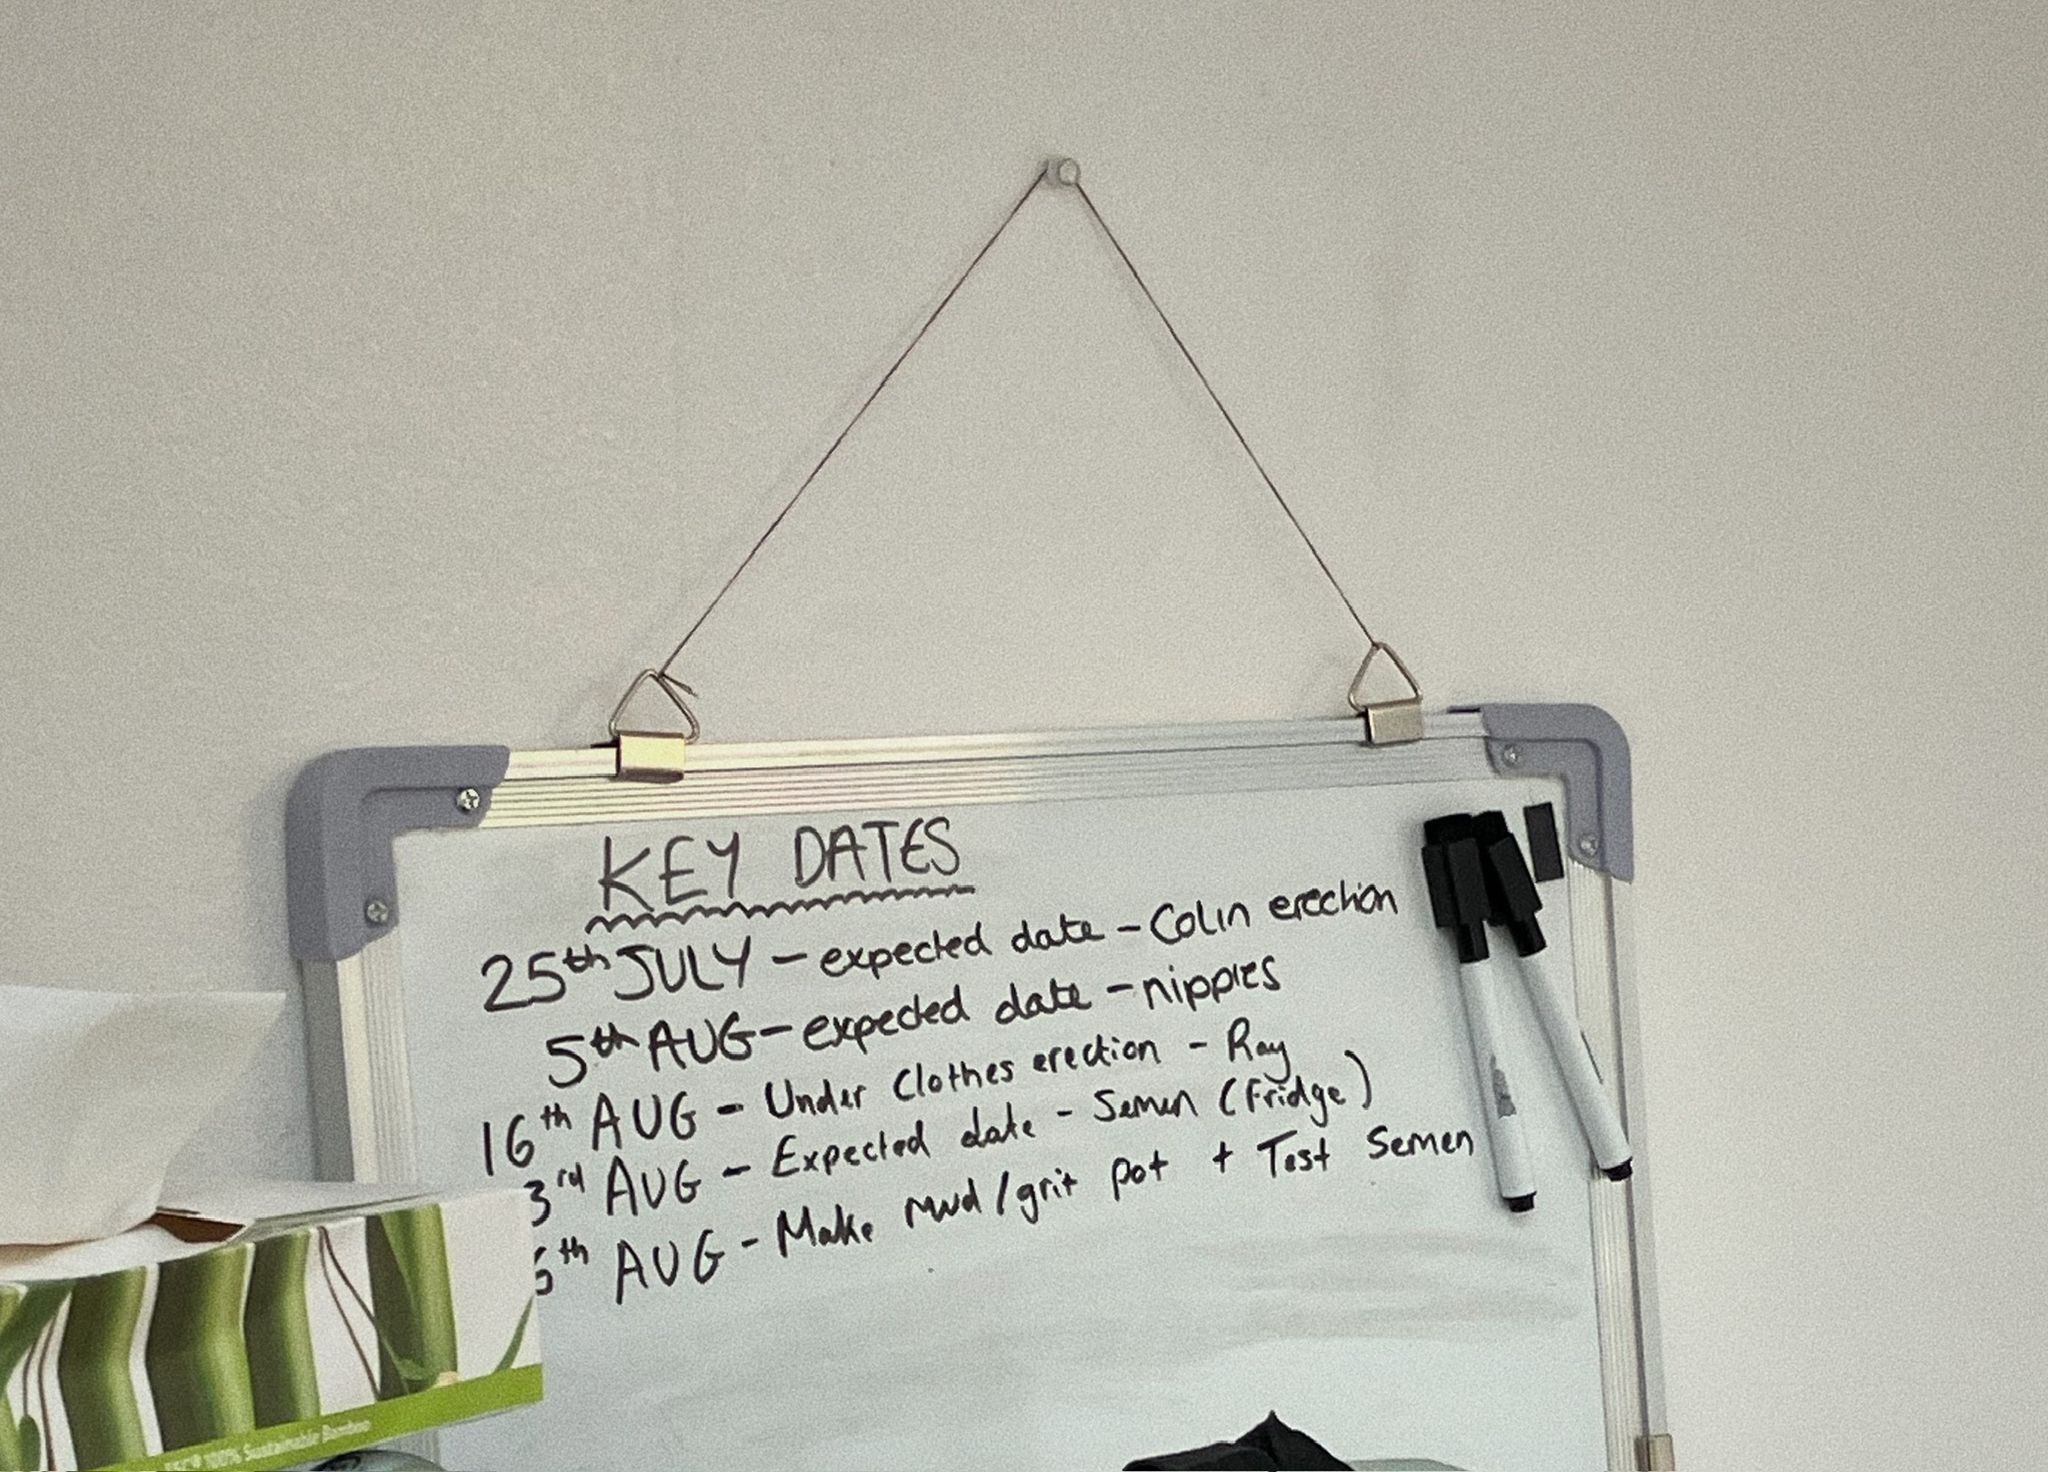 KEY DATES
25th JULY - expected date - Colin erection
5th AUG - expected date - nipples
16th AUG - Under Clothes erection - Ray
3rd AUG - Expected date - Semen (Fridge)
5th AUG - Make mud/grit pot + Test Semen
100% Sustainable Bamboo